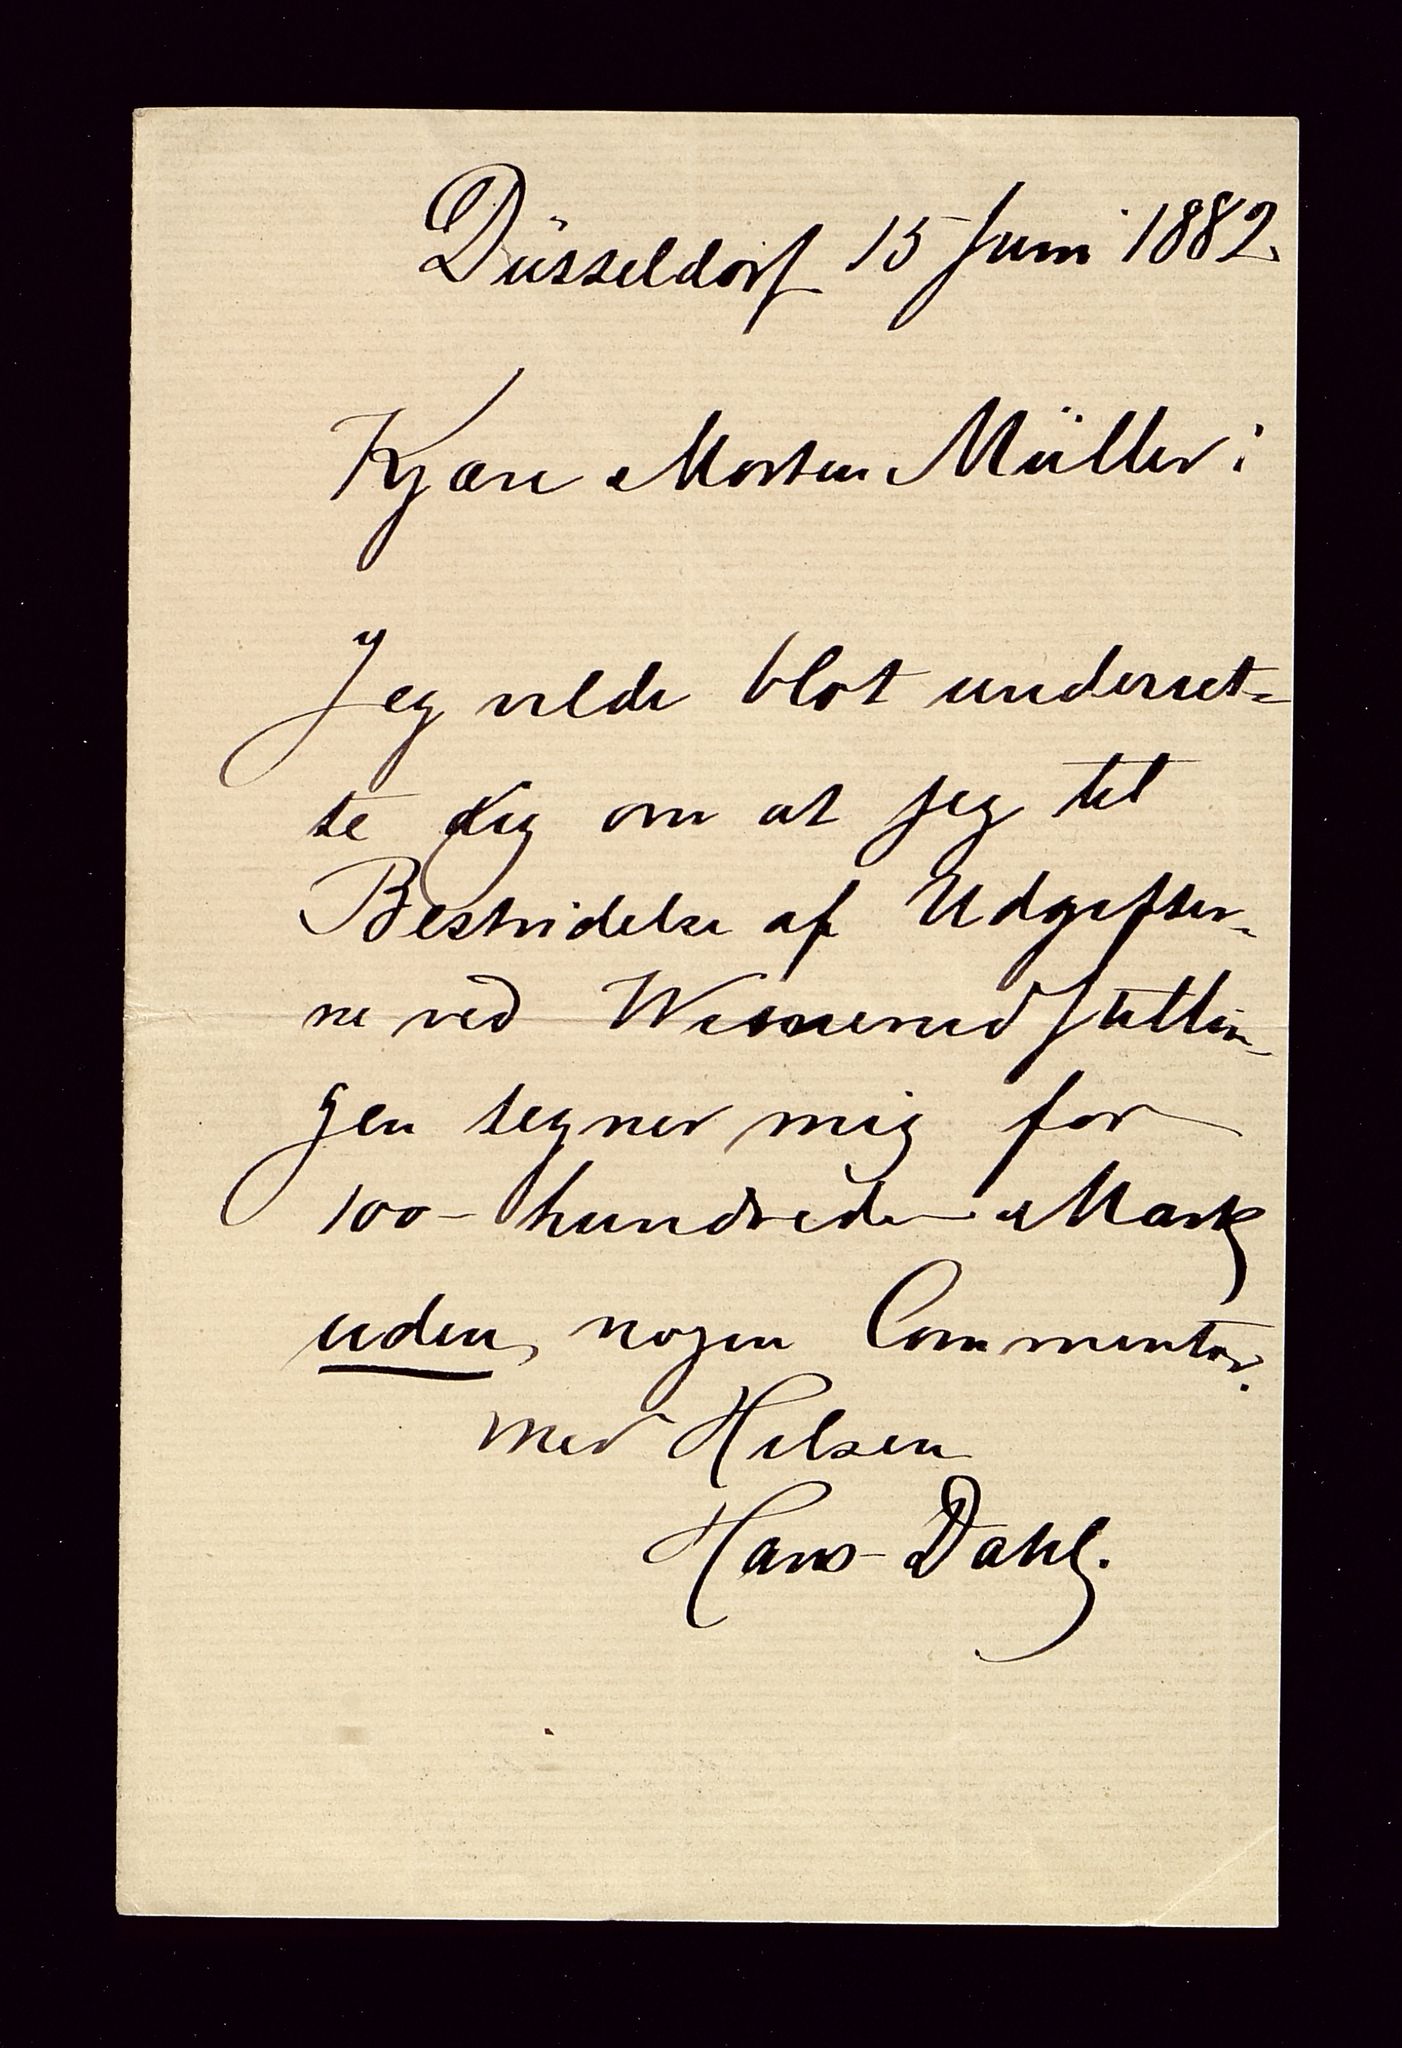 Düsseldorf 15 Juni 1882.
Kjære Morten Müller!
Jeg vilde blot underret-
te dig om at jeg til
Bestridelse af Udgifter-
ne ved Wienerudstillin-
gen tegner mig for
100 – hundrede – Mark
uden nogen Commentar.
Med Hilsen
Hans Dahl.